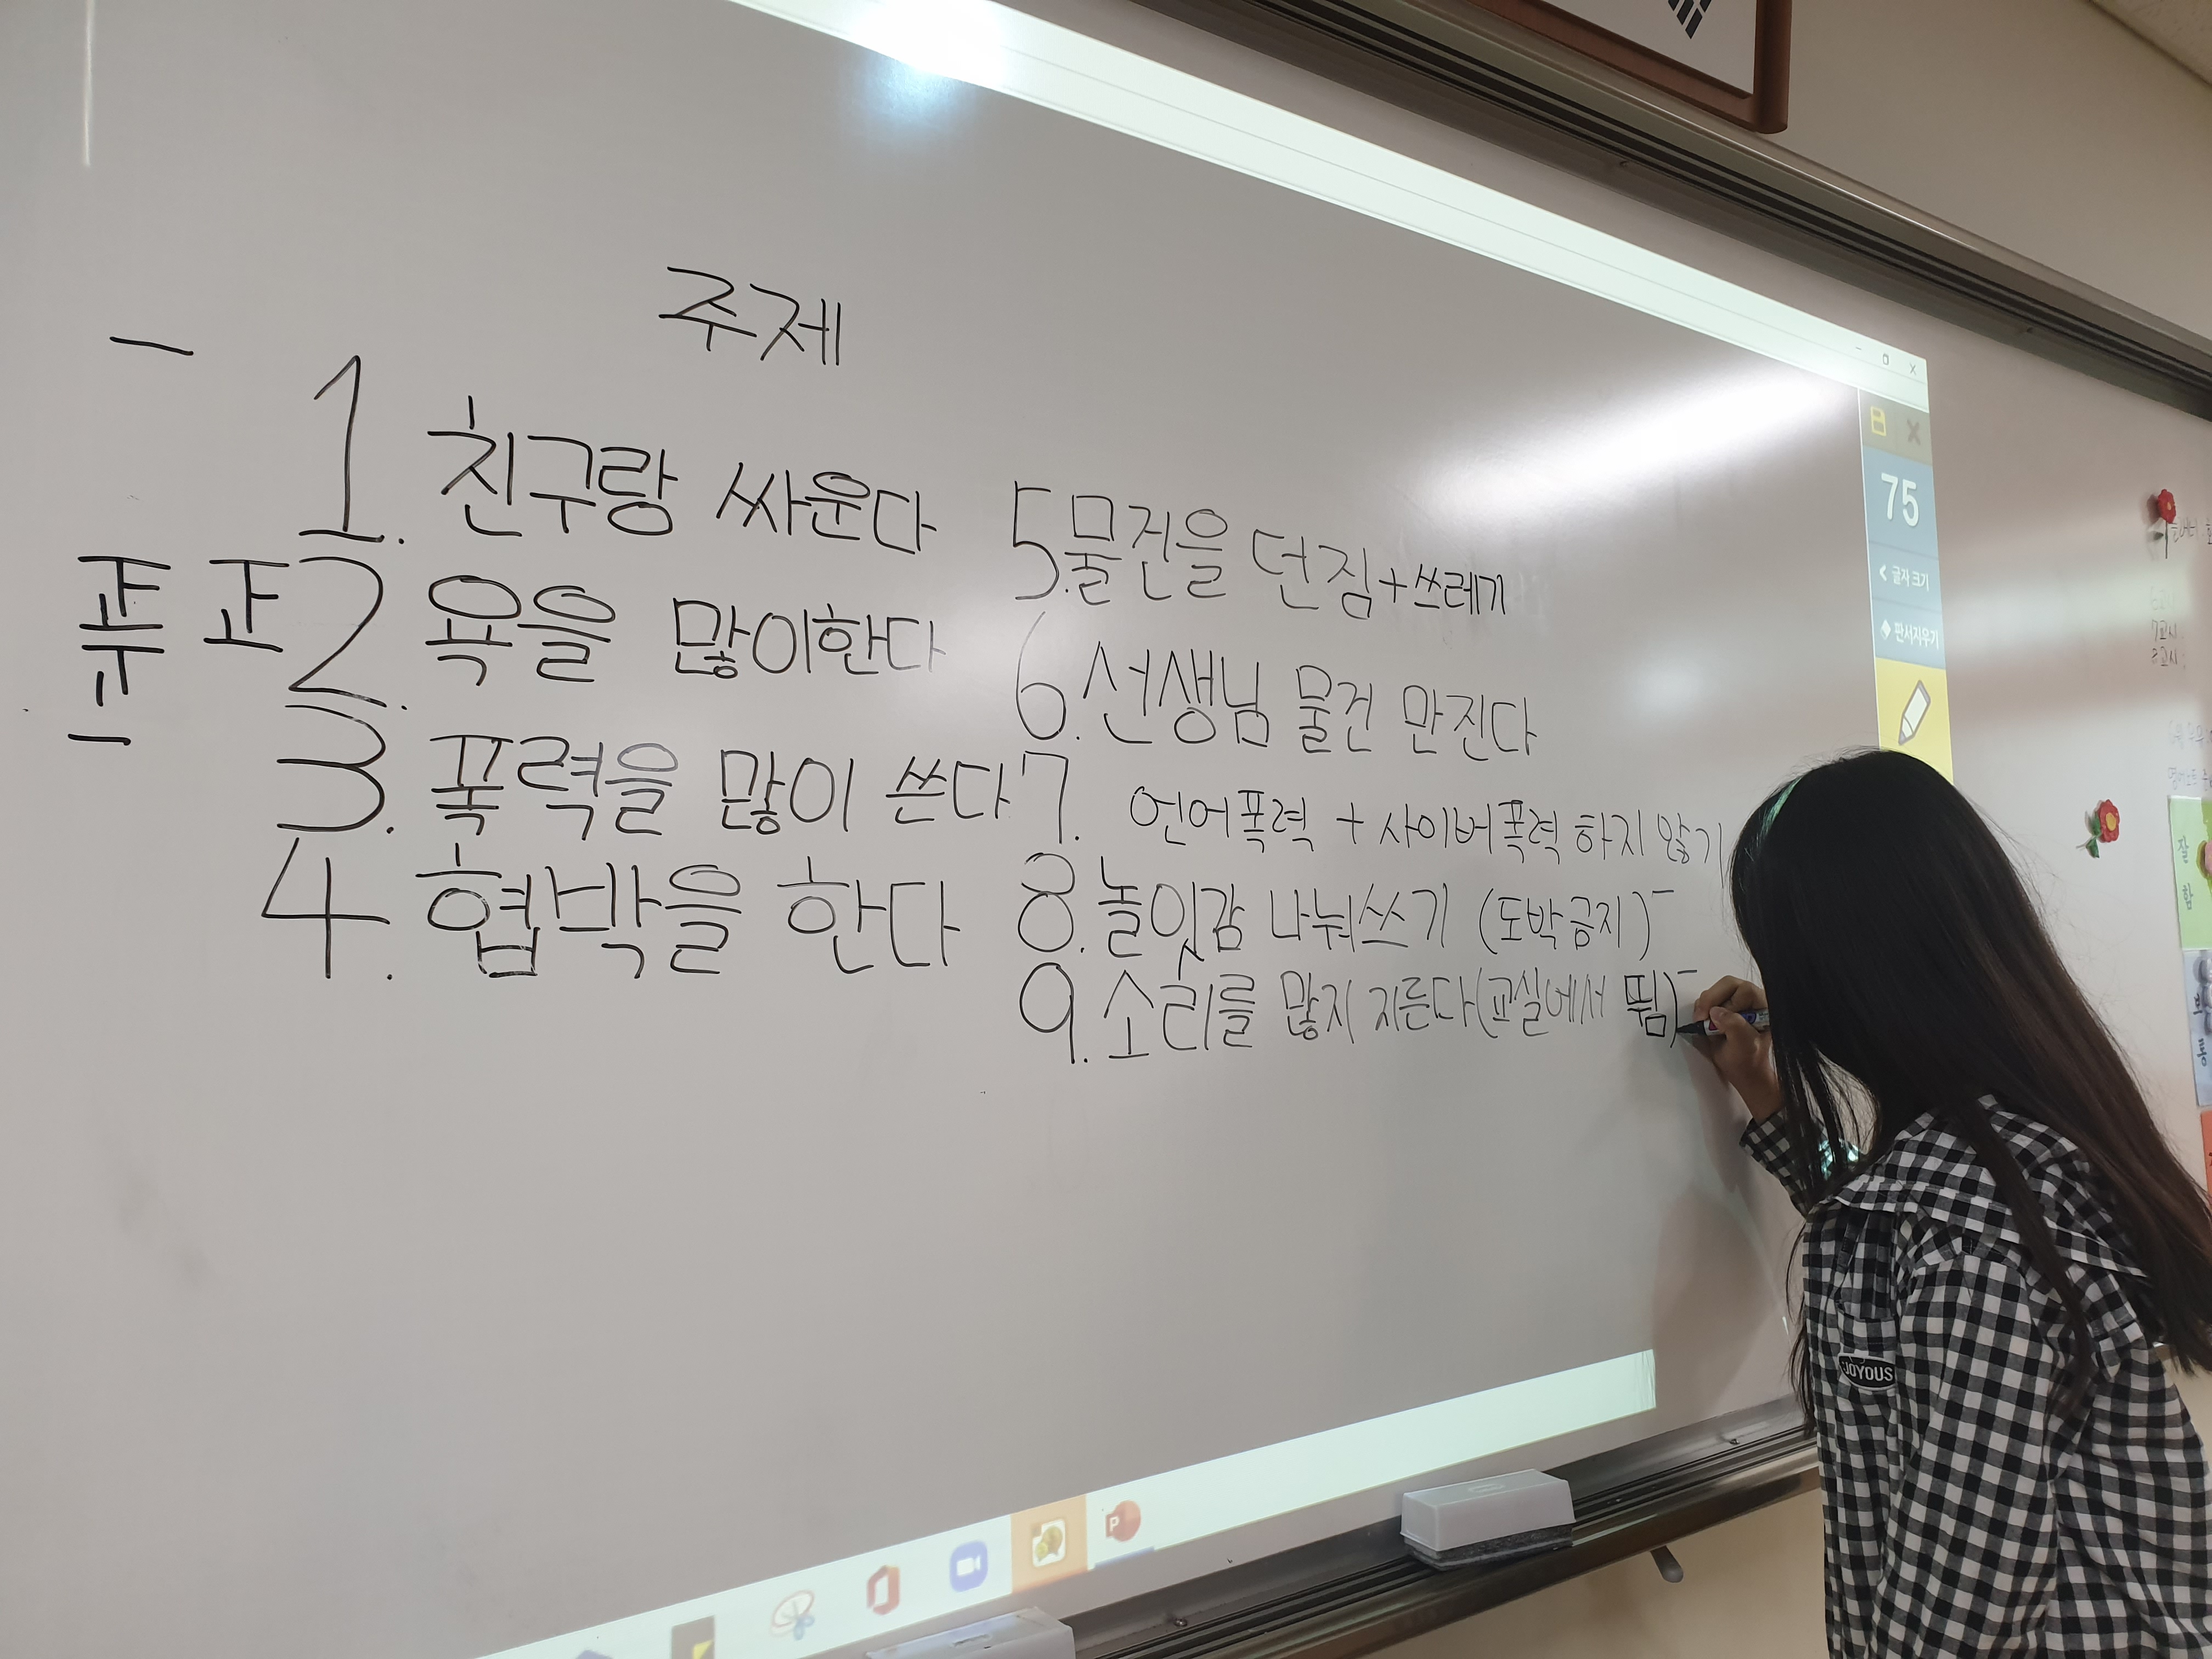 주제
1. 친구랑 싸운다
正 正 2. 욕을 많이한다
3. 폭력을 많이 쓴다
4. 협박을 한다
5. 물건을 던짐+쓰레기
6. 선생님 물건 만진다
7. 언어폭력 + 사이버폭력 하지 않기
8. 놀잇감 나눠쓰기 (도박금지)
9. 소리를 많지 지른다(교실에서 뜀)
75
글자 크기
판서지우기
7교시
8교시
잘
함
JOYOUS
P